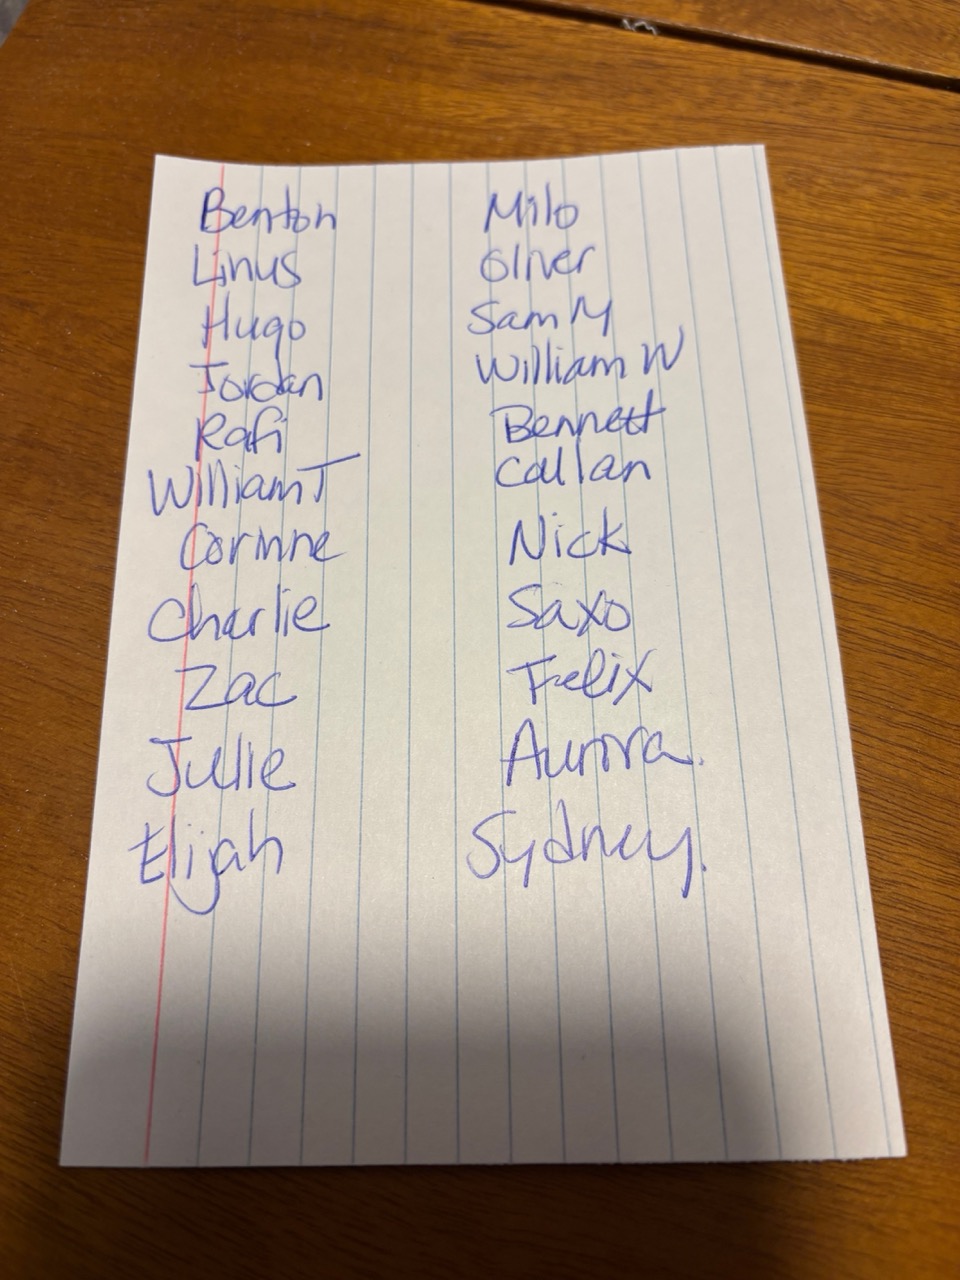 Benton
Linus
Hugo
Jordan
Rafi
William T
Corinne
Charlie
Zac
Julie
Elijah
Milo
Oliver
Sam M
William W
Bennett
Callan
Nick
Saxo
Felix
Aurora.
Sydney.